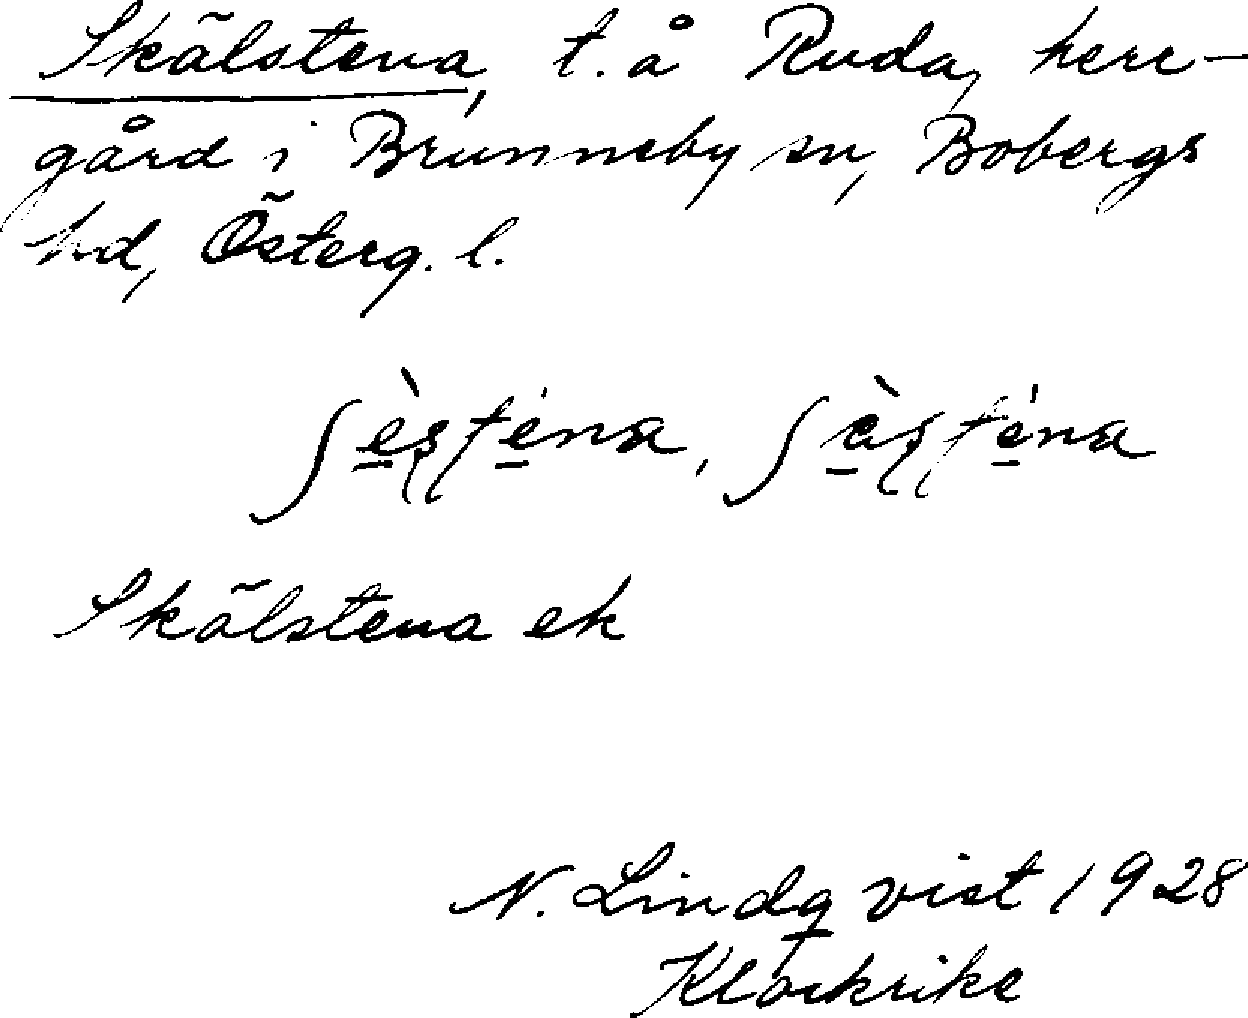 Skälstena, t. å Ruda, herr-
gård i Brunneby sn, Bobergs
hd, Österg. l.
Skälstena ek
N. Lindqvist 1928
Klockrike